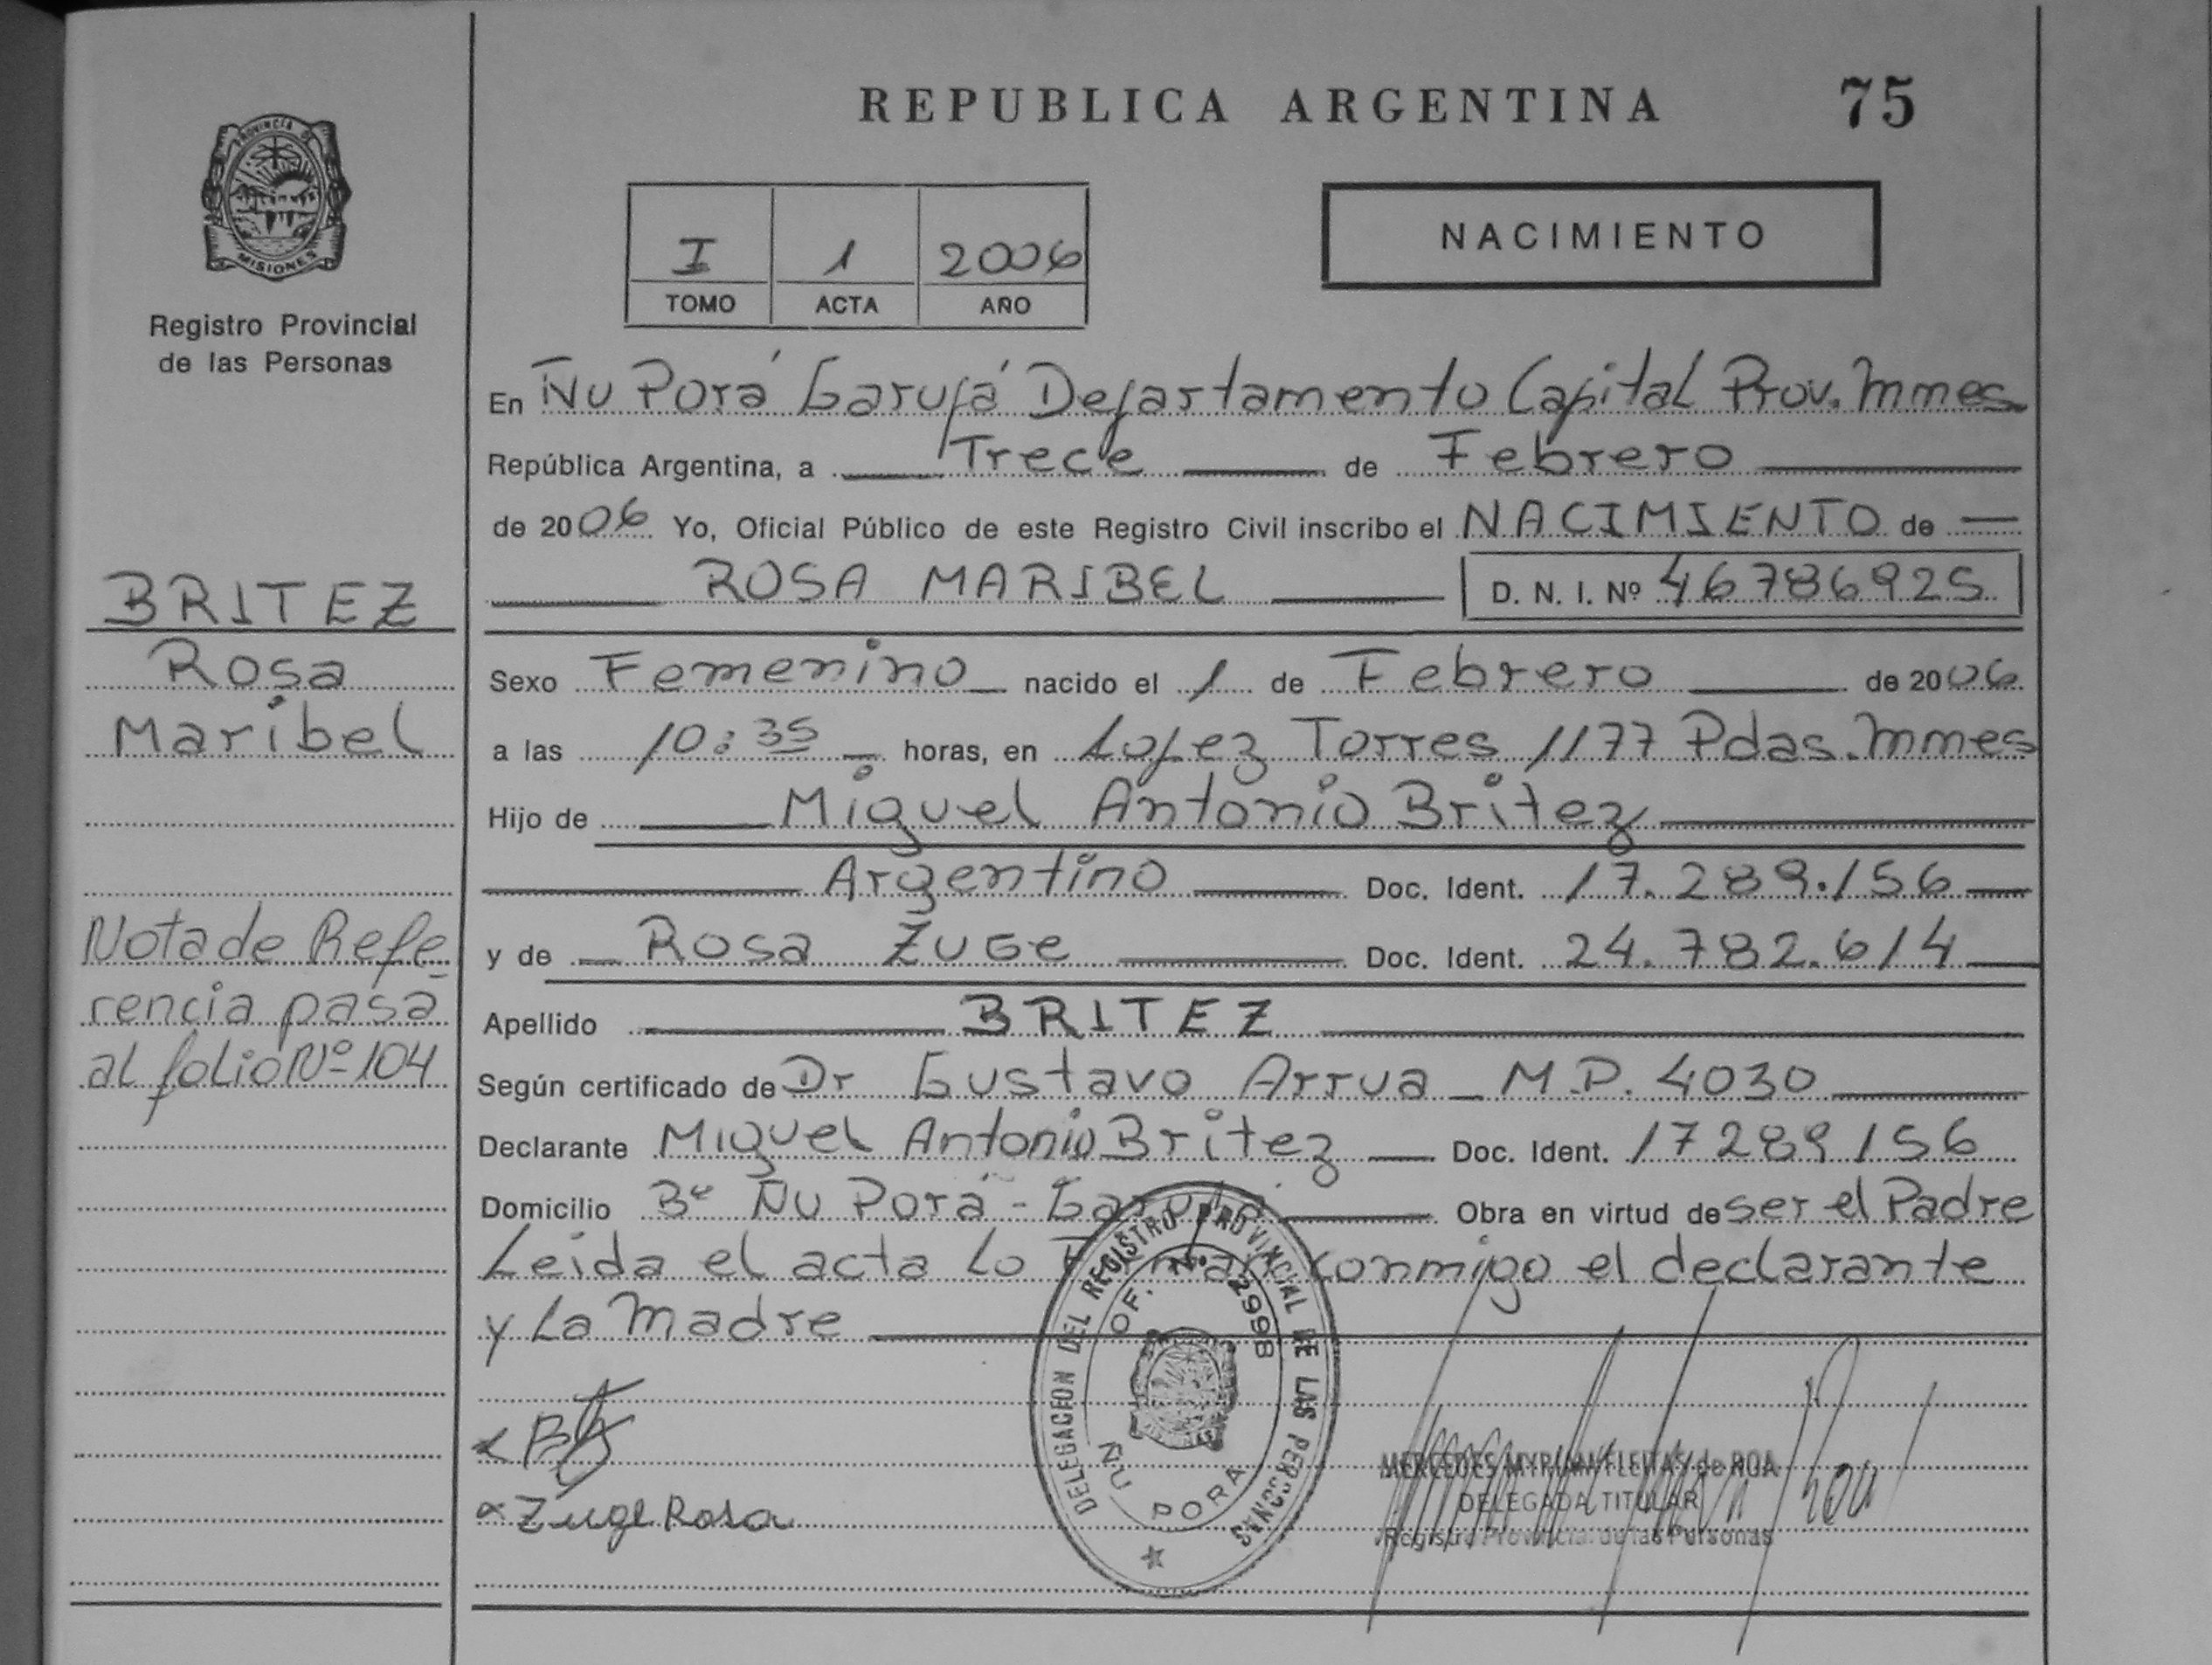 PROVINCIA DE
MISIONES
Registro Provincial
de las Personas
BRITEZ
Rosa
Maribel
Nota de Refe-
rencia pasa
al folio Nº 104
REPUBLICA ARGENTINA 75
I 1 2006
TOMO ACTA AÑO
NACIMIENTO
En Ñu Porá Garupá Departamento Capital Prov. Mmes
República Argentina, a Trece de Febrero
de 2006 Yo, Oficial Público de este Registro Civil inscribo el NACIMIENTO de
ROSA MARIBEL D. N. I. Nº 46786925
Sexo Femenino nacido el 1 de Febrero de 2006
a las 10:35 horas, en Lopez Torres 1177 Pdas. Mmes
Hijo de Miguel Antonio Britez
Argentino Doc. Ident. 17.289.156
y de Rosa Zuge Doc. Ident. 24.782.614
Apellido BRITEZ
Según certificado de Dr Gustavo Arrua M.P. 4030
Declarante Miguel Antonio Britez Doc. Ident. 17289156
Domicilio Bº Ñu Porá - Garupá Obra en virtud de ser el Padre
Leida el acta lo Firman conmigo el declarante
y la Madre
DELEGACION DEL REGISTRO PROVINCIAL DE LAS PERSONAS
OF. Nº 2998
ÑU PORA
Zuge Rosa
MERCEDES MYRIAN FLEITAS de ROA
DELEGADA TITULAR
Registro Provincial de las Personas